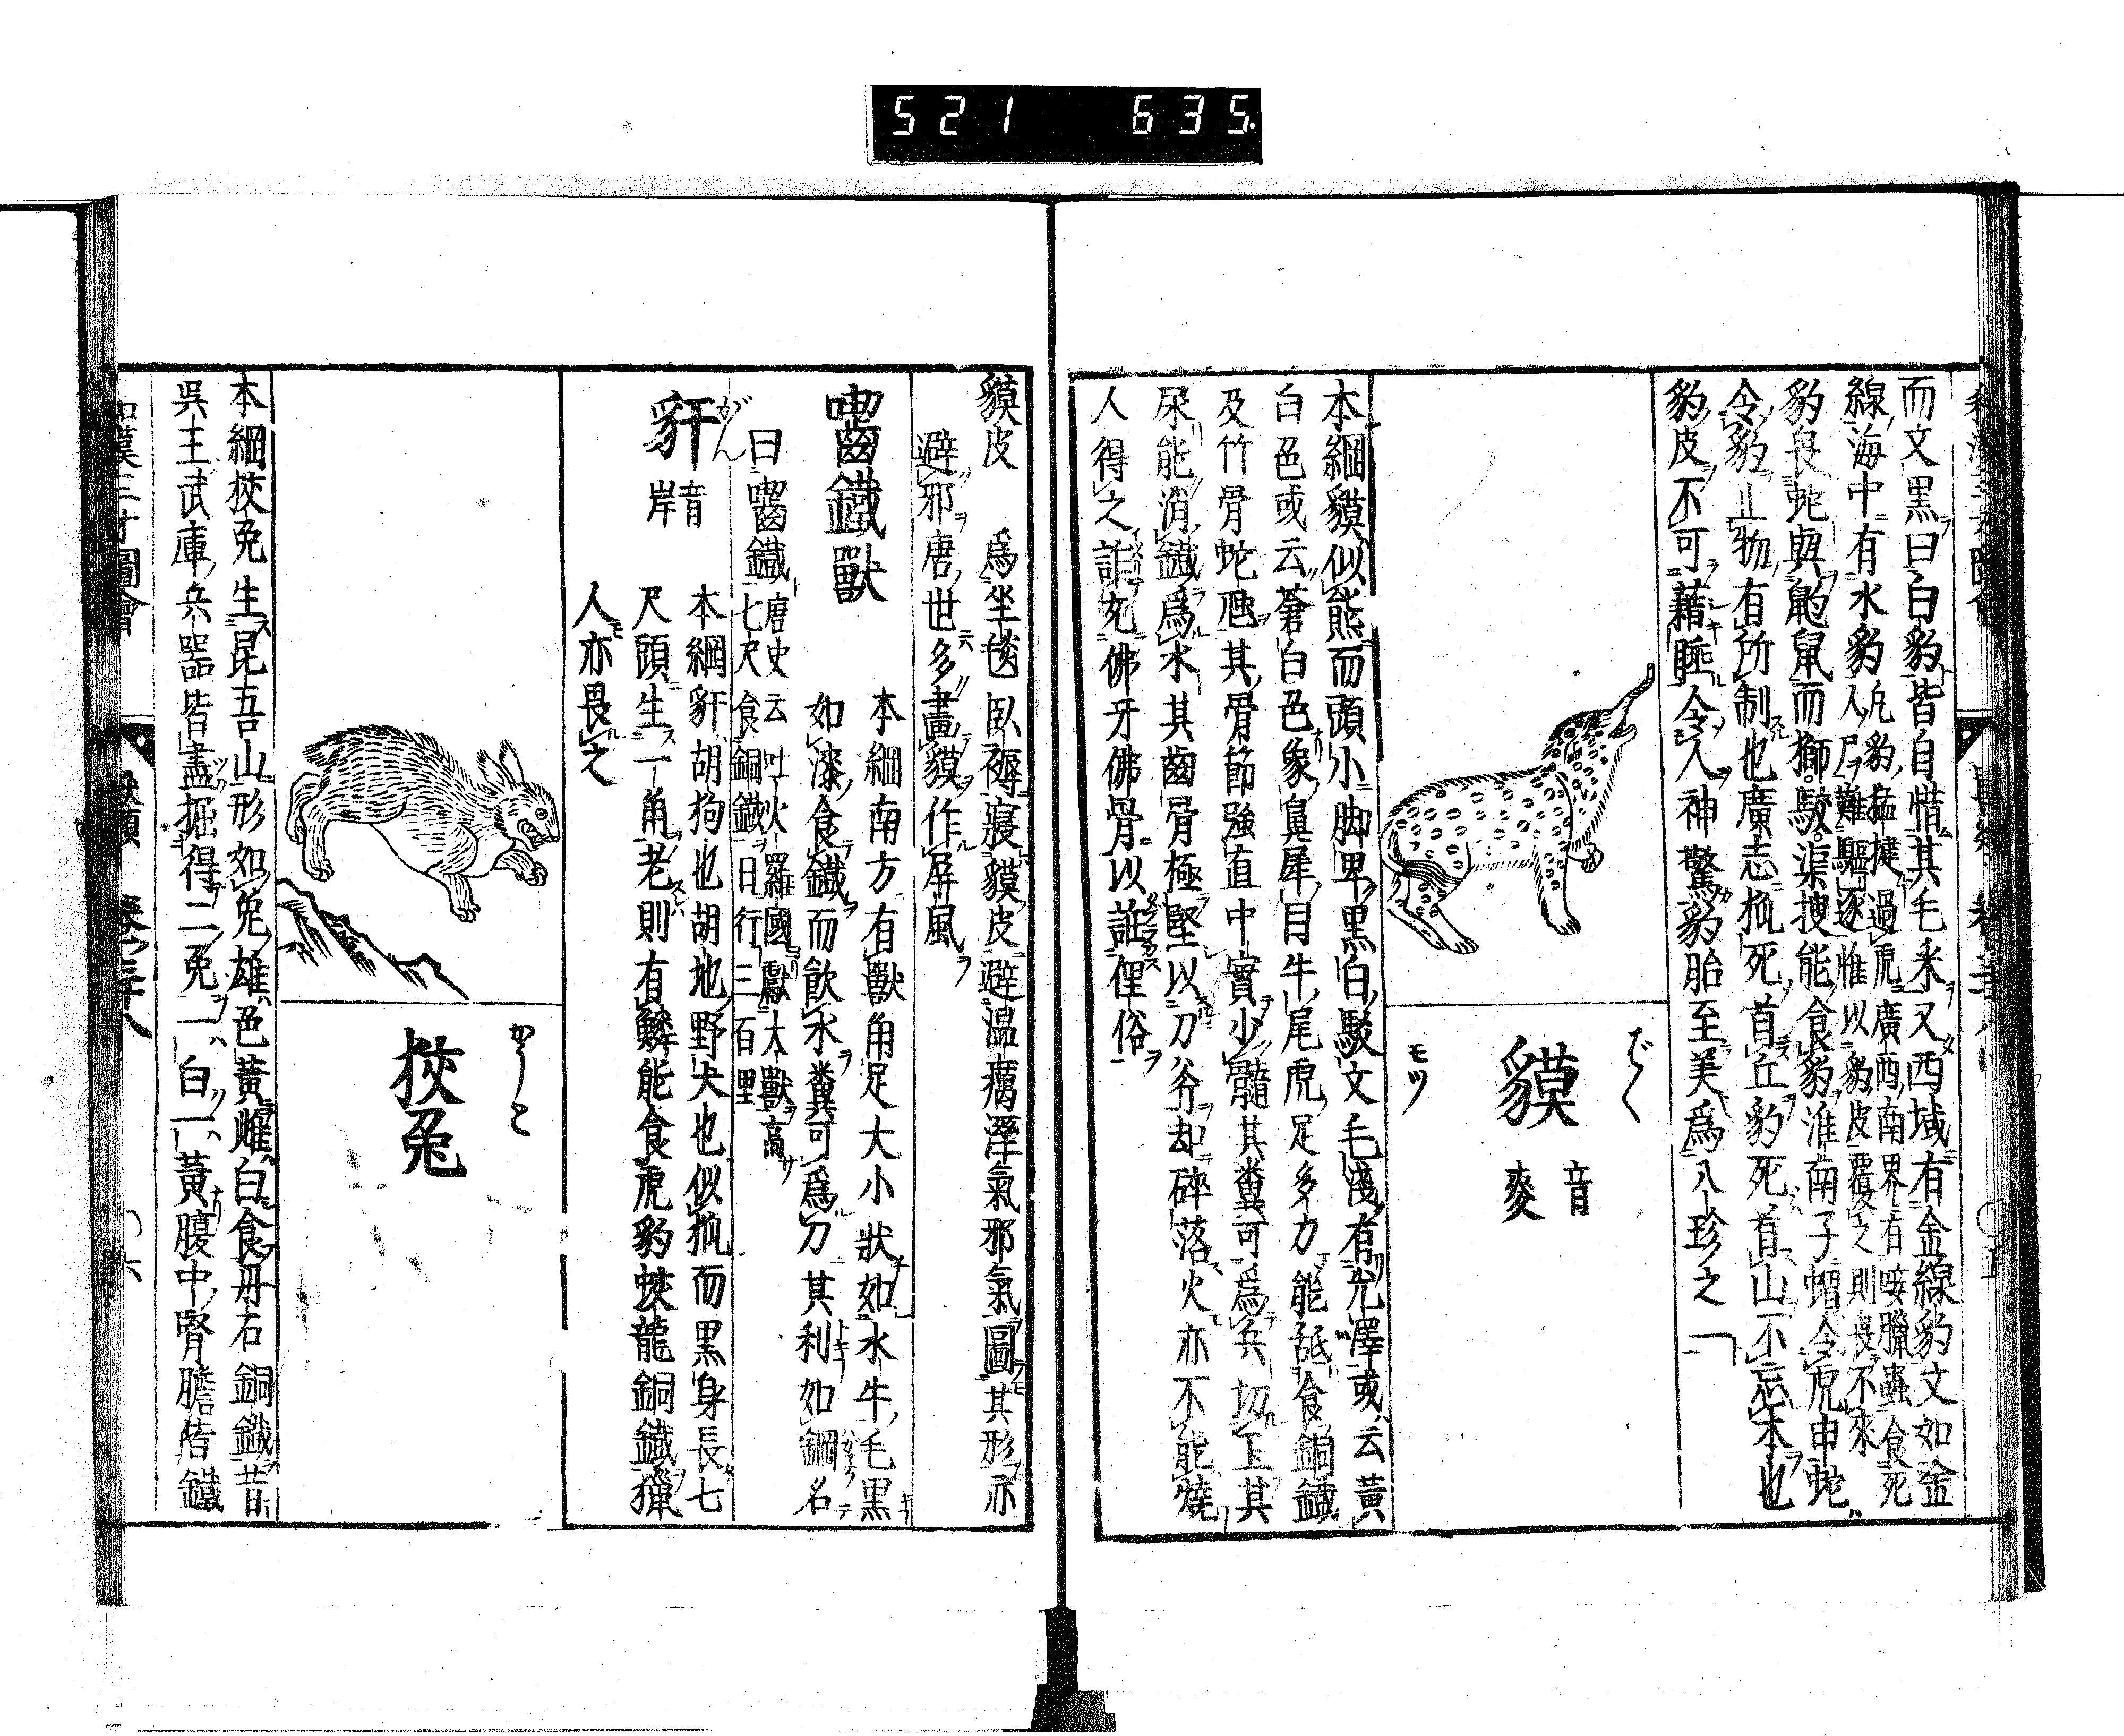 521 635
而文黒曰白豹皆自惜其毛釆又西域有金線豹文如金
線海中有水豹凡豹猛捷過虎廣西南界有唼臘蟲食死
人尸難驅逐惟以豹皮覆之則畏不來
豹畏蛇與鼩鼠而獅駮渠搜能食豹淮南子蝟令虎申蛇
令豹止物有所制也廣志狐死首丘豹死首山不忘本也
豹皮不可藉睡令人神驚豹胎至美爲八珍之一
ばく
貘 音麥
モツ
本綱貘似熊而頭小脚卑黒白駁文毛淺有光澤或云黃
白色或云蒼白色象鼻犀目牛尾虎足多力能舐食銅鐵
及竹骨蛇虺其骨節強直中實少髓其糞可爲兵切玉其
尿能消鐵爲水其齒骨極堅以刀斧却碎落火亦不能燒
人得之詐充佛牙佛骨以誑俚俗
貘皮 爲坐毯臥褥寢貘皮避温癘溼氣邪氣圖其形亦
避邪唐世多畫貘作屏風
囓鐵獸
本綱南方有獸角足大小狀如水牛毛黒
如漆食鐵而飲水糞可爲刀其利如鋼名
曰囓鐵 唐史云吐火羅國獻大獸高
七尺食銅鐵日行三百里
がん
豻 音岸
本綱豻胡狗也胡地野犬也似狐而黒身長七
尺頭生一角老則有鱗能食虎豹蛟龍銅鐵獵
人亦畏之
かうと
狡兔
本綱狡兔生昆吾山形如兔雄色黃雌白食丹石銅鐵昔
吳王武庫兵器皆盡掘得二兔一白一黃腹中腎膽皆鐵
和漢三才圖會 獸類 卷之三十八 〇六